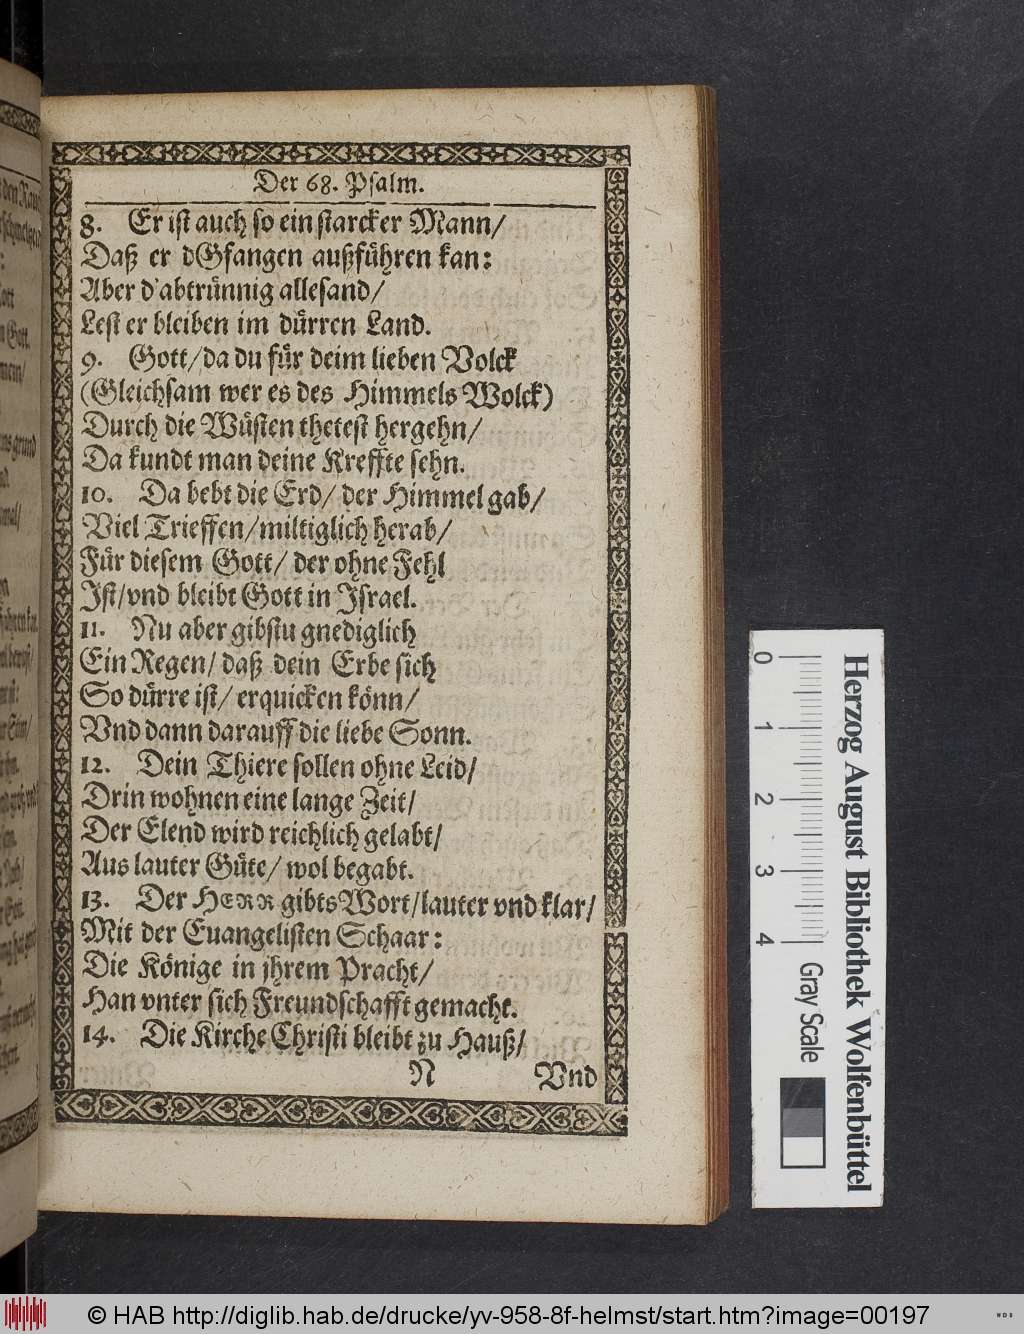 Der 68. Psalm.
8. Er ist auch so ein starcker Mann/
Daß er dGfangen außführen kan:
Aber d'abtrünnig allesand/
Lest er bleiben im dürren Land.
9. Gott/da du für deim lieben Volck
(Gleichsam wer es des Himmels Wolck)
Durch die Wüsten thetest hergehn/
Da kundt man deine Kreffte sehn.
10. Da bebt die Erd/ der Himmel gab/
Viel Trieffen/miltiglich herab/
Für diesem Gott/ der ohne Fehl
Ist/vnd bleibt Gott in Israel.
11. Nu aber gibstu gnediglich
Ein Regen/ daß dein Erbe sich
So dürre ist/ erquicken könn/
Vnd dann darauff die liebe Sonn.
12. Dein Thiere sollen ohne Leid/
Drin wohnen eine lange Zeit/
Der Elend wird reichlich gelabt/
Aus lauter Güte/ wol begabt.
13. Der HERR gibts Wort/lauter vnd klar/
Mit der Euangelisten Schaar:
Die Könige in jhrem Pracht/
Han vnter sich Freundschafft gemacht.
14. Die Kirche Christi bleibt zu Hauß/
N Vnd
0 1 2 3 4
Gray Scale
Herzog August Bibliothek Wolfenbüttel
© HAB http://diglib.hab.de/drucke/yv-958-8f-helmst/start.htm?image=00197